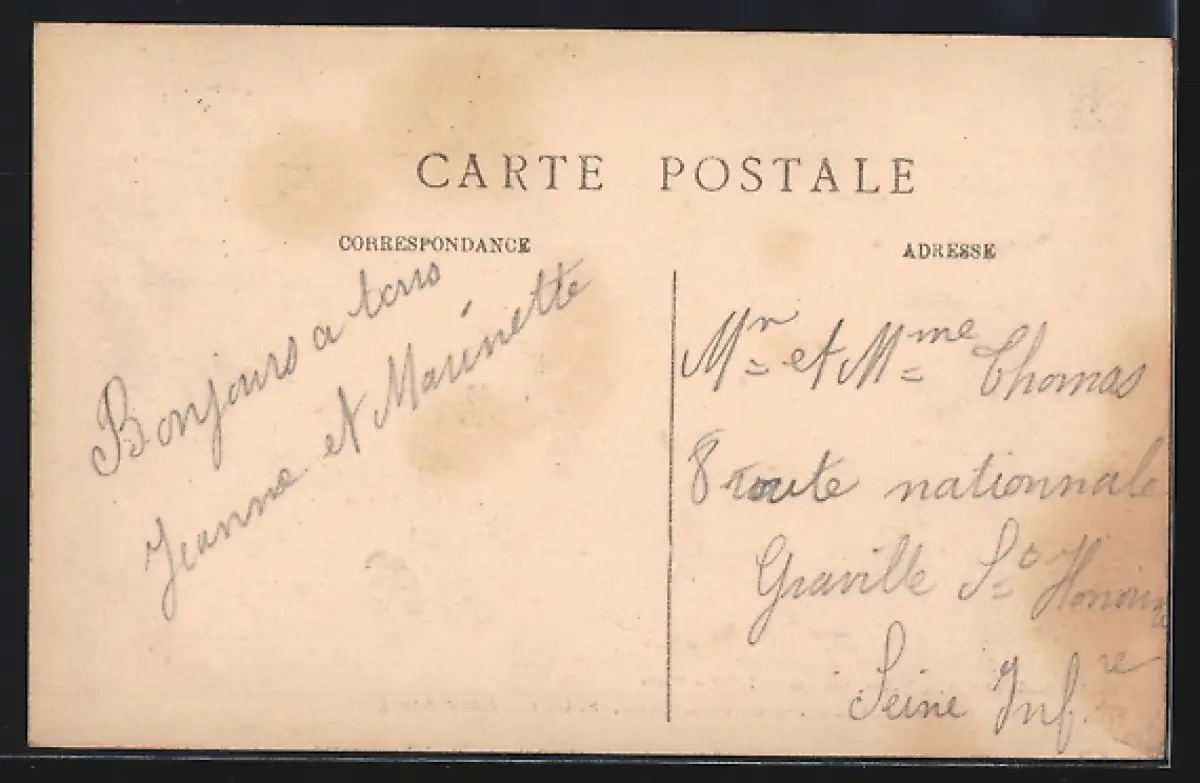 CARTE POSTALE
CORRESPONDANCE
Bonjours a tous
Jeanne et Marinette
ADRESSE
Mr et Mme Thomas
8 route nationnale
Graville Ste Honorine
Seine Infre